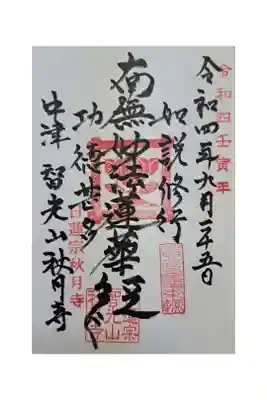 令和四壬寅年
令和四年六月二十五日
如説修行
南無妙法蓮華経
功徳甚多
日蓮宗秋月寺
中津 智光山秋月寺